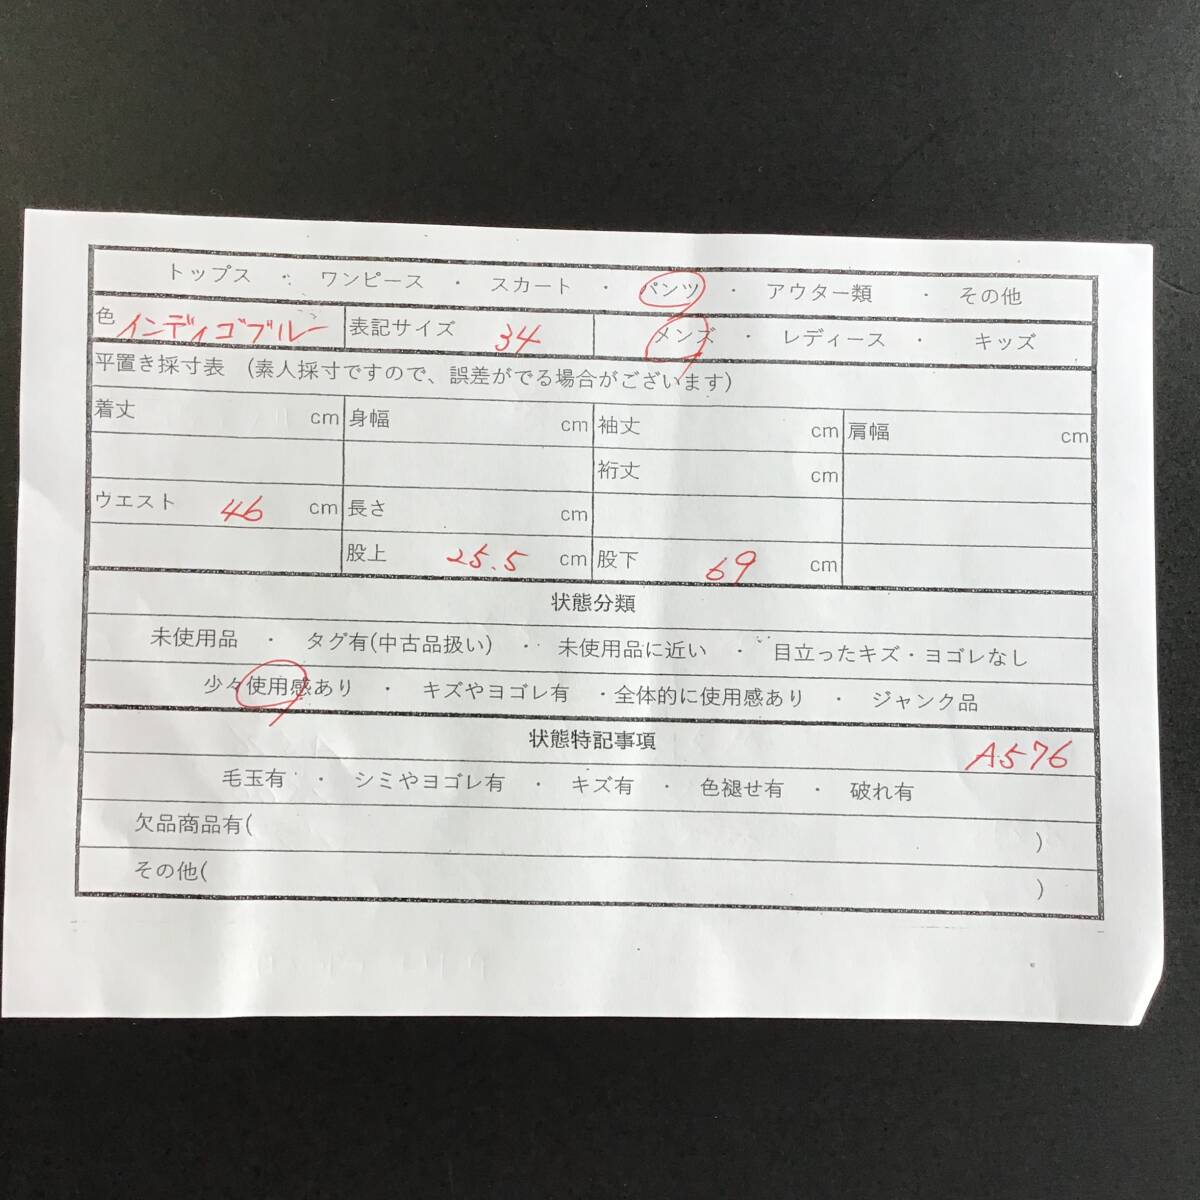 トップス ・ ワンピース ・ スカート ・ パンツ ・ アウター類 ・ その他
色 インディゴブルー 表記サイズ 34 メンズ ・ レディース ・ キッズ
平置き採寸表 (素人採寸ですので、誤差がでる場合がございます)
着丈 cm 身幅 cm 袖丈 cm 肩幅 cm
裄丈 cm
ウエスト 46 cm 長さ cm
股上 25.5 cm 股下 69 cm
状態分類
未使用品 ・ タグ有(中古品扱い) ・ 未使用品に近い ・ 目立ったキズ・ヨゴレなし
少々使用感あり ・ キズやヨゴレ有 ・全体的に使用感あり ・ ジャンク品
状態特記事項 A576
毛玉有 ・ シミやヨゴレ有 ・ キズ有 ・ 色褪せ有 ・ 破れ有
欠品商品有( )
その他( )